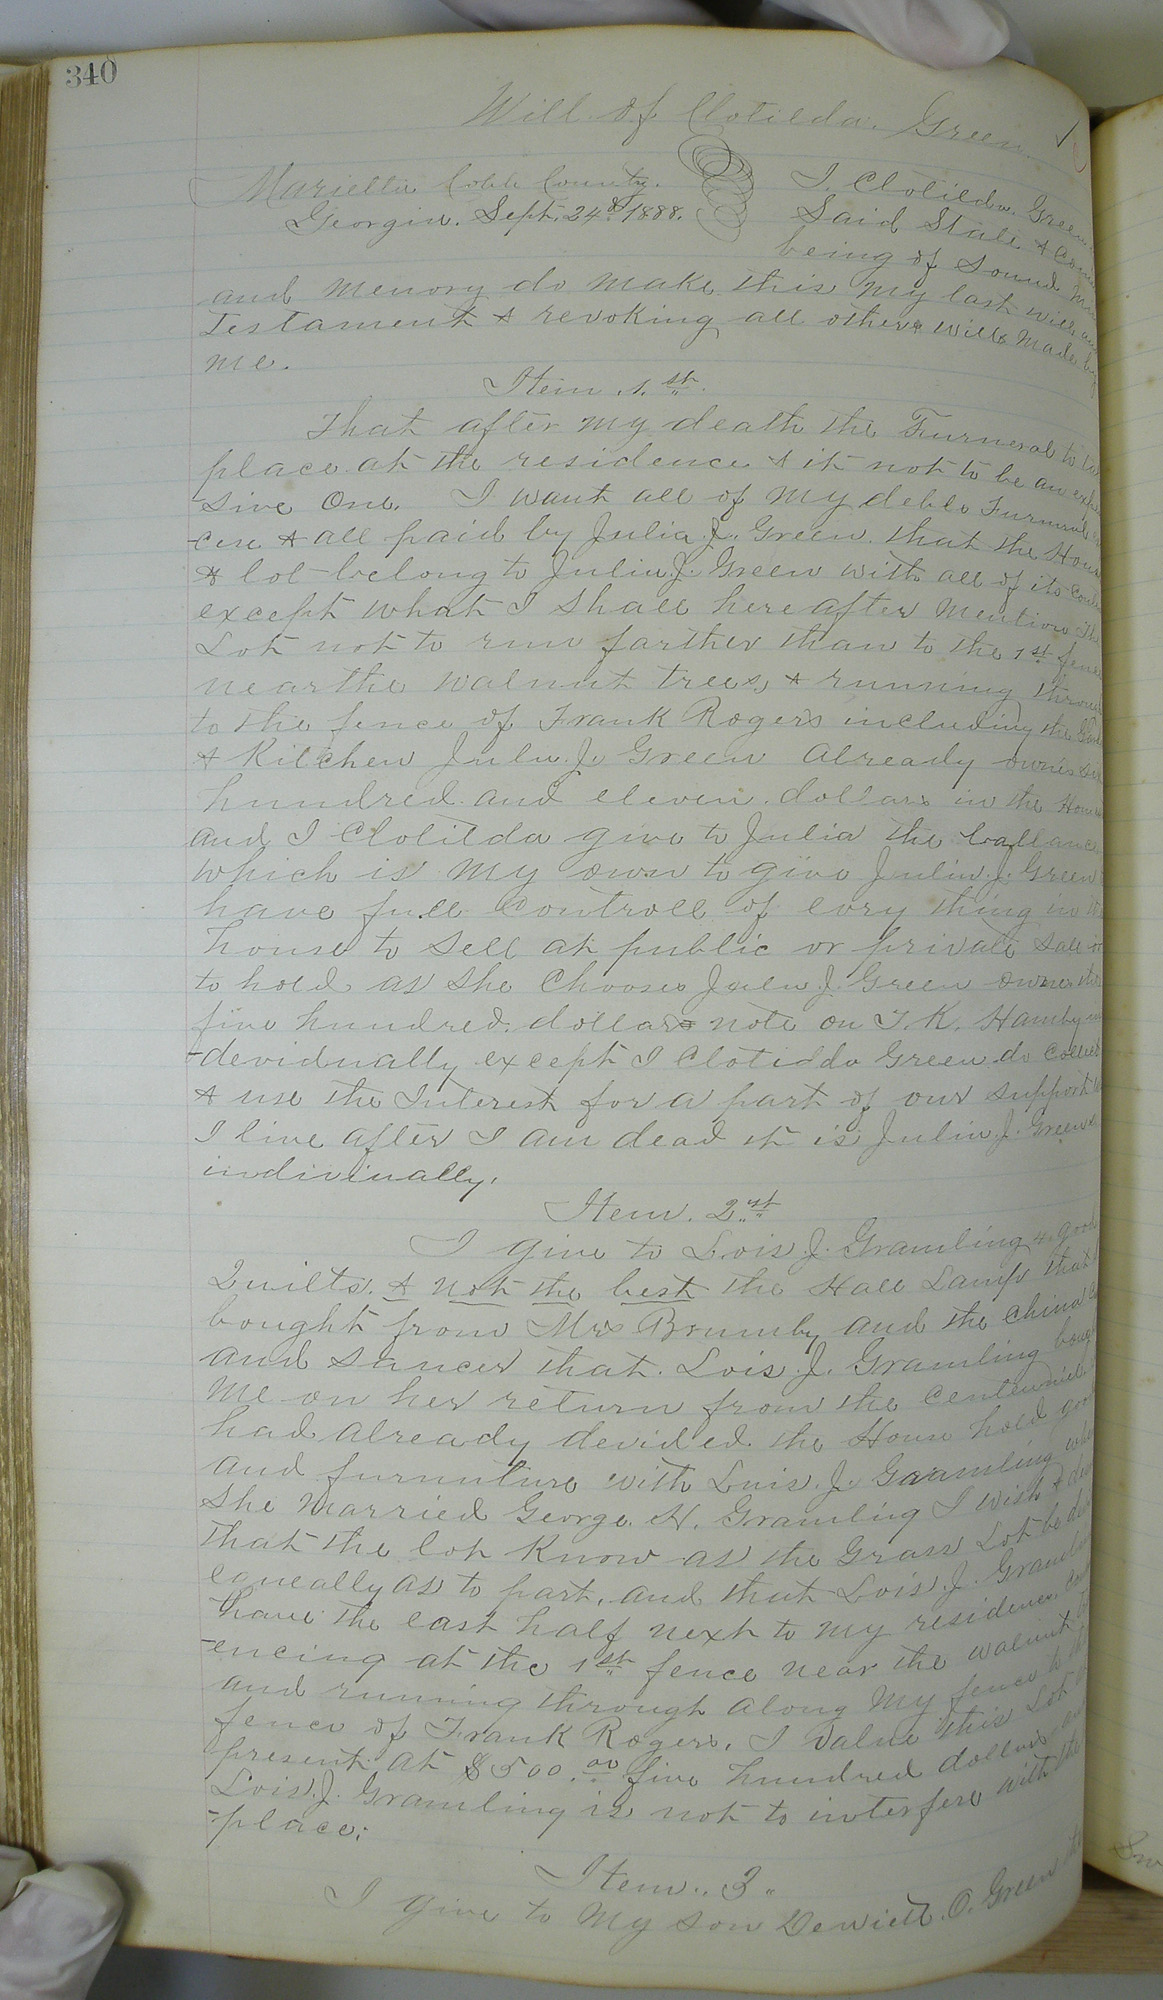 340
Will of Clotilda. Green
Marietta Cobb County.
Georgia. Sept. 24th 1888.
I. Clotilda. Green
Said State & Coun
being of Sound Min
and memory do make this my last will and
Testament & revoking all others wills made by
me.
Item. 1. st.
That after my death the Furneral to ta
place at the residence & it not to be an expe
sive One. I want all of my debts Furneral
cen & all paid by Julia. J. Green. that the Hous
& lot belong to Julia. J. Green with all of its conte
except what I shall here after mention The
Lot not to run farther than to the 1st fence
near the walnut trees, & running through
to the fence of Frank Rogers including the
& Kitchen Julia. J. Green already ownes six
hundred and eleven. dollars in the House
and I Clotilda give to Julia the ballance
which is my own to give Julia. J. Green
have full controll of evry thing in th
house to sell at public or private sale or
to hold as she chooses Julia J. Green ownes the
five hundred. dollars note on T. K. Hamby in
-devidually except I Clotilda Green do collect
& use the Interest for a part of our support
I live after I am dead it is Julia J. Greens
indivinally.
Item. 2.st
I give to Lois. J. Gramling 4 good
Quilts. & not the best the Hall Lamp that
bought from Mrs Brumby and the china
and sancer that. Lois. J. Gramling bough
me on her return from the centennial.
had already devided the House hold good
and furnuture with Lois. J. Gramling whe
she married George. H. Gramling I wish & des
that the lot know as the Grass Lot be
equeally as to part, and that Lois. J. Gramlin
have the east half next to my residence. com
-encing at the 1st fence near the walnut
and running through along my fence to the
fence of Frank Rogers. I value this Lot
present at $500.00 five hundred dollars
Lois. J. Gramling is not to interfere with the
-place:
Item.. 3..
I give to my son Dewitt. O. Green